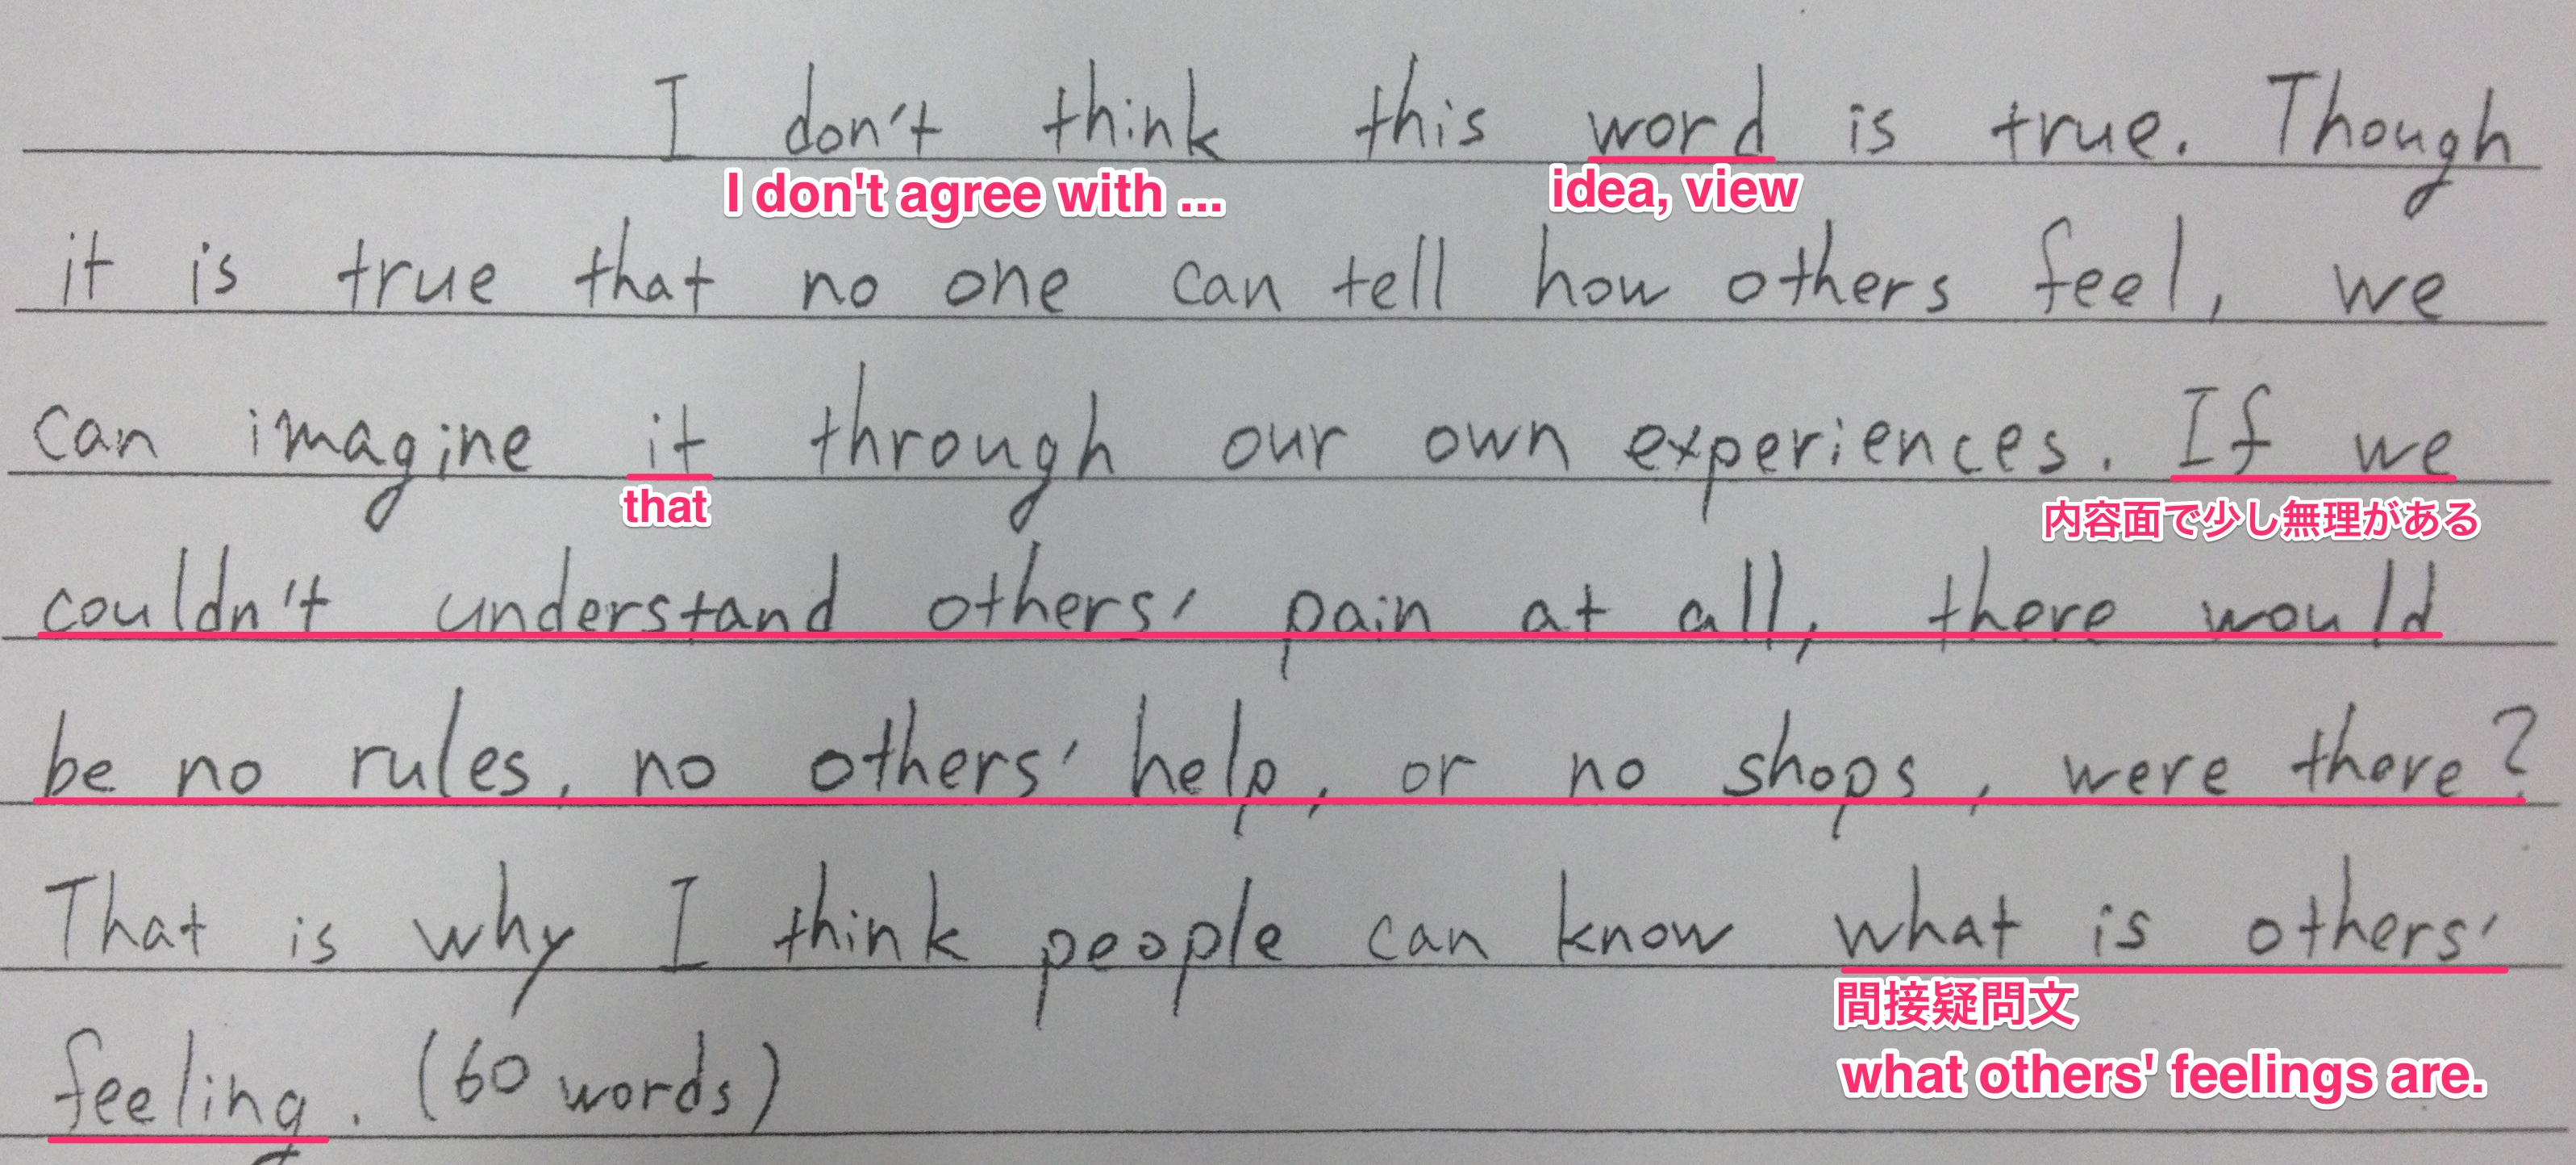 I don't think this word is true. Though
I don't agree with ... idea, view
it is true that no one can tell how others feel, we
can imagine it through our own experiences. If we
that 内容面で少し無理がある
couldn't understand others' pain at all, there would
be no rules, no others' help, or no shops, were there?
That is why I think people can know what is others'
間接疑問文
what others' feelings are.
feeling. (60 words)